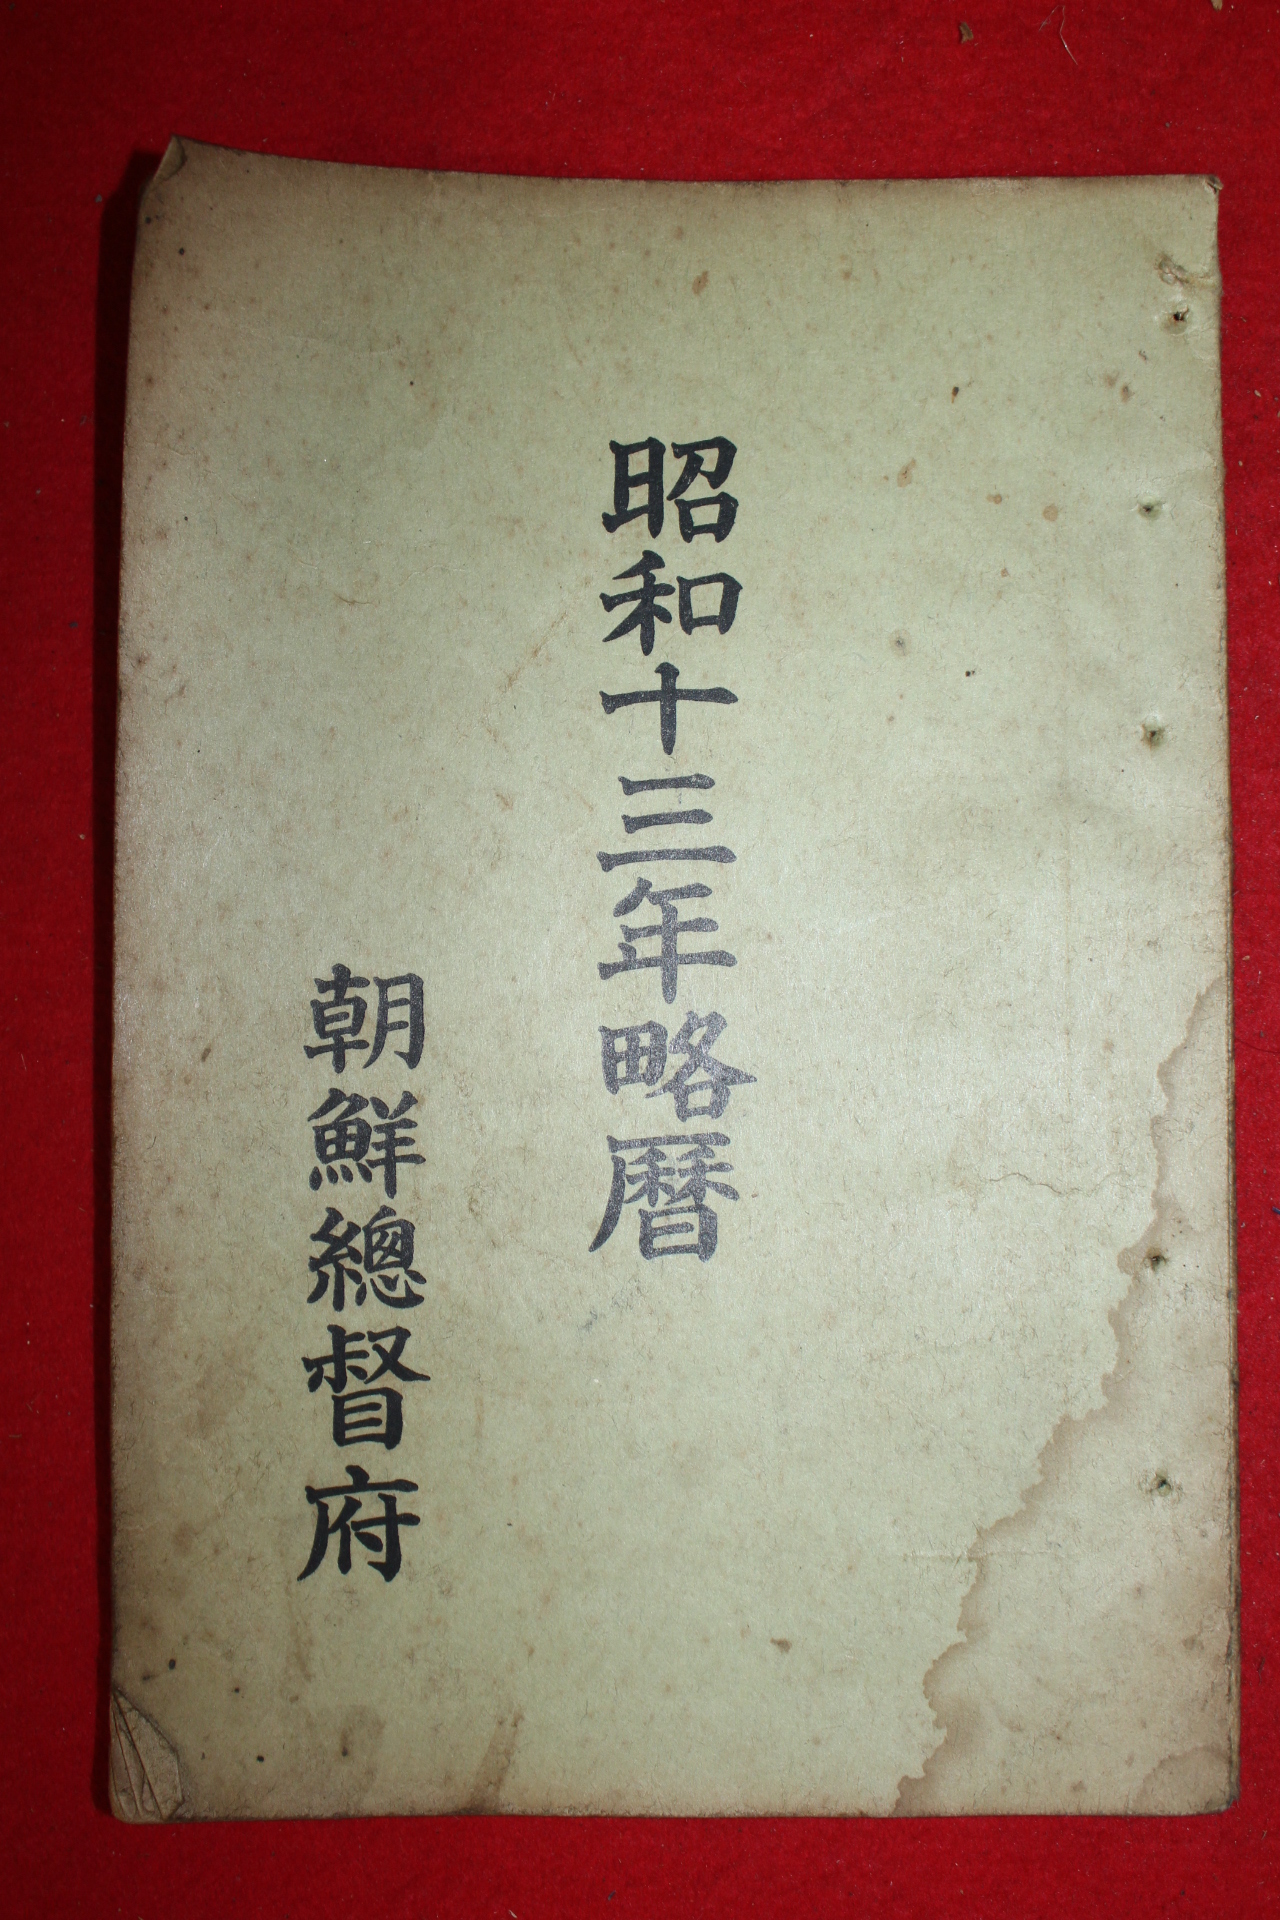 昭和十三年略曆
朝鮮總督府